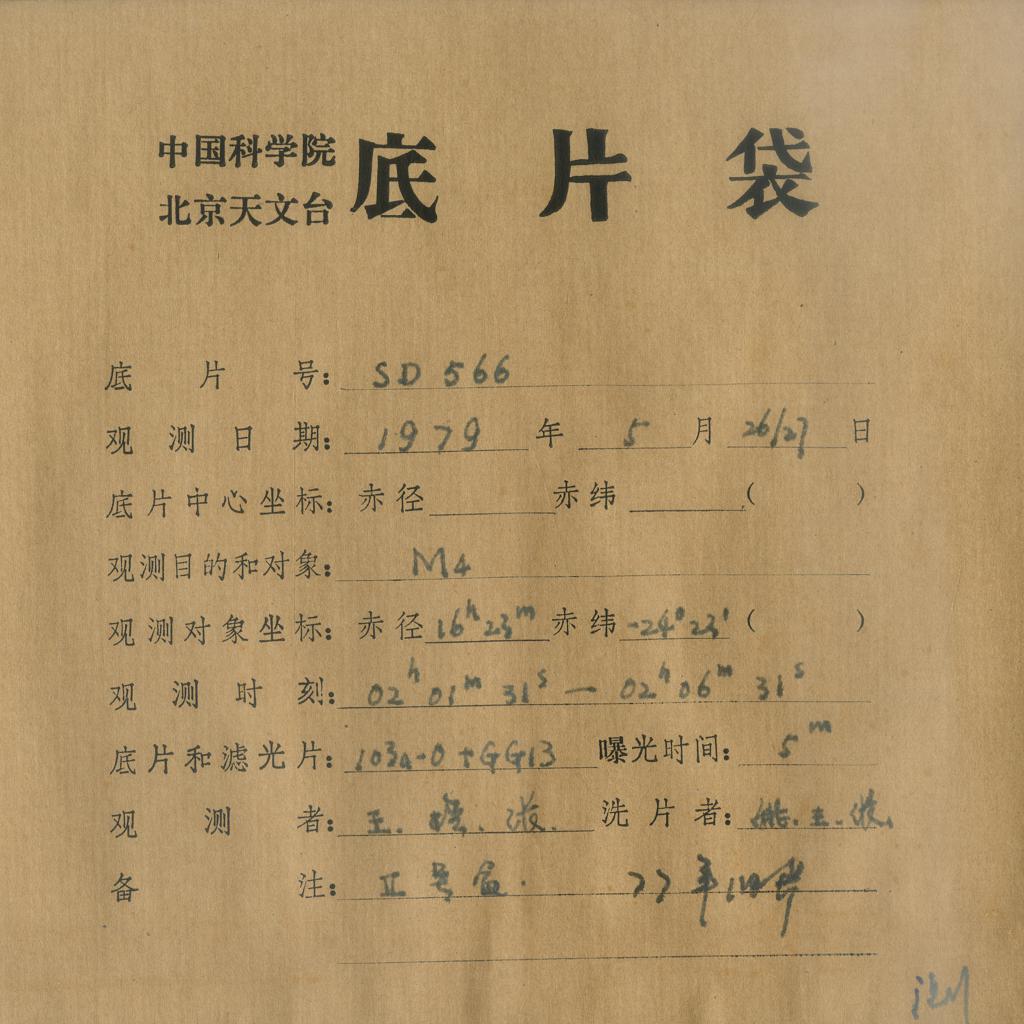 中国科学院
北京天文台
底片袋
底片号： SD 566
观测日期： 1979 年 5 月 26/27 日
底片中心坐标： 赤径 赤纬 （ ）
观测目的和对象： M4
观测对象坐标： 赤径 16h 23m 赤纬 -24° 23′ （ ）
观测时刻： 02h 01m 31s — 02h 06m 31s
底片和滤光片： 103a-O + GG13 曝光时间： 5m
观测者： 王. 洗片者： 王.
备注： II号盒. 77年